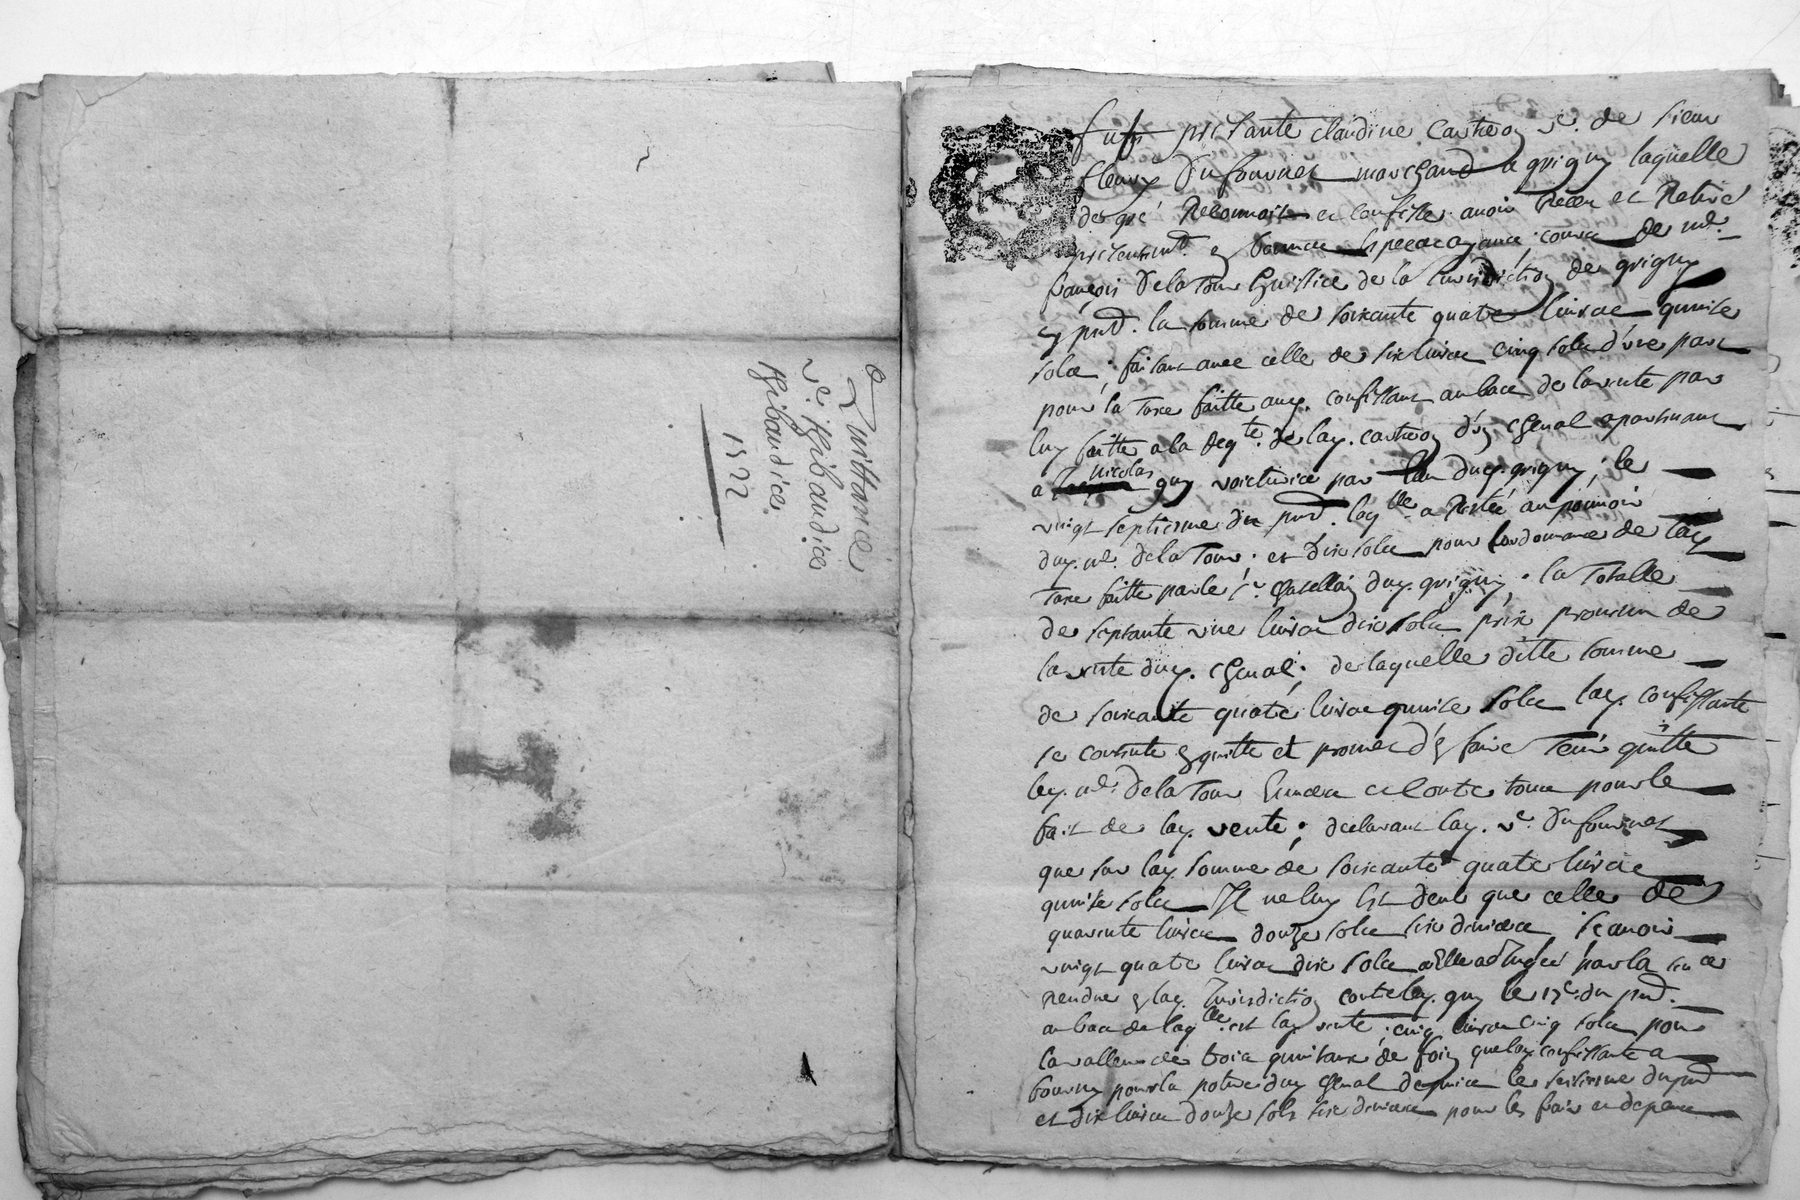 Quittance
ve. Thibaudice
Thibaudice
1722
fust presante claudine castreon ve. de sieur
fleury Dufournet marchand a grigny laquelle
de gré Reconnoist et confesse avoir Receu et Retiré
françois Delatour huissier de la Jurisdiction de grigny
pnd. la somme de soixante quatre livres quinze
sols; faisant avec celle de six livres cinq sols d'une part
pour la taxe faitte confessant au bas de la vente par
luy faitte a la de lad. castreon d'un cheval apartenant
nicolas
a guy voicturier par dud. grigny; le
vingt septiesme du pnd. laqlle a Restée au pouvoir
dud. delatour; et dix sols pour l'ordonnance de lad.
taxe faitte par le sr. chatellain dud. grigny; la totalle
de septante une livres dix sols prix provenu de
la vente dud. cheval; de laquelle ditte somme
de soixante quatre livres quinze sols lad. confessante
se contente quitte et promet d'en faire tenir quitte
led. delatour envers et contre tous pour le
fait de lad. vente; declarant lad. ve. Dufournet
que sur lad. somme de soixante quatre livres
quinze sols Il ne luy est deub que celle de
quarente livres douze sols six deniers scavoir
vingt quatre livres dix sols adjugés par la
rendue lad. Jurisdiction contre led. guy le 17e. du pnd.
au bas de laqlle est lad. vente; cinq livres cinq sols pour
la valleur de trois quintaux de foin que lad. confessante a
fourny pour la dud. cheval depuis le dupnd
et dix livres douze sols six deniers pour les frais et depens